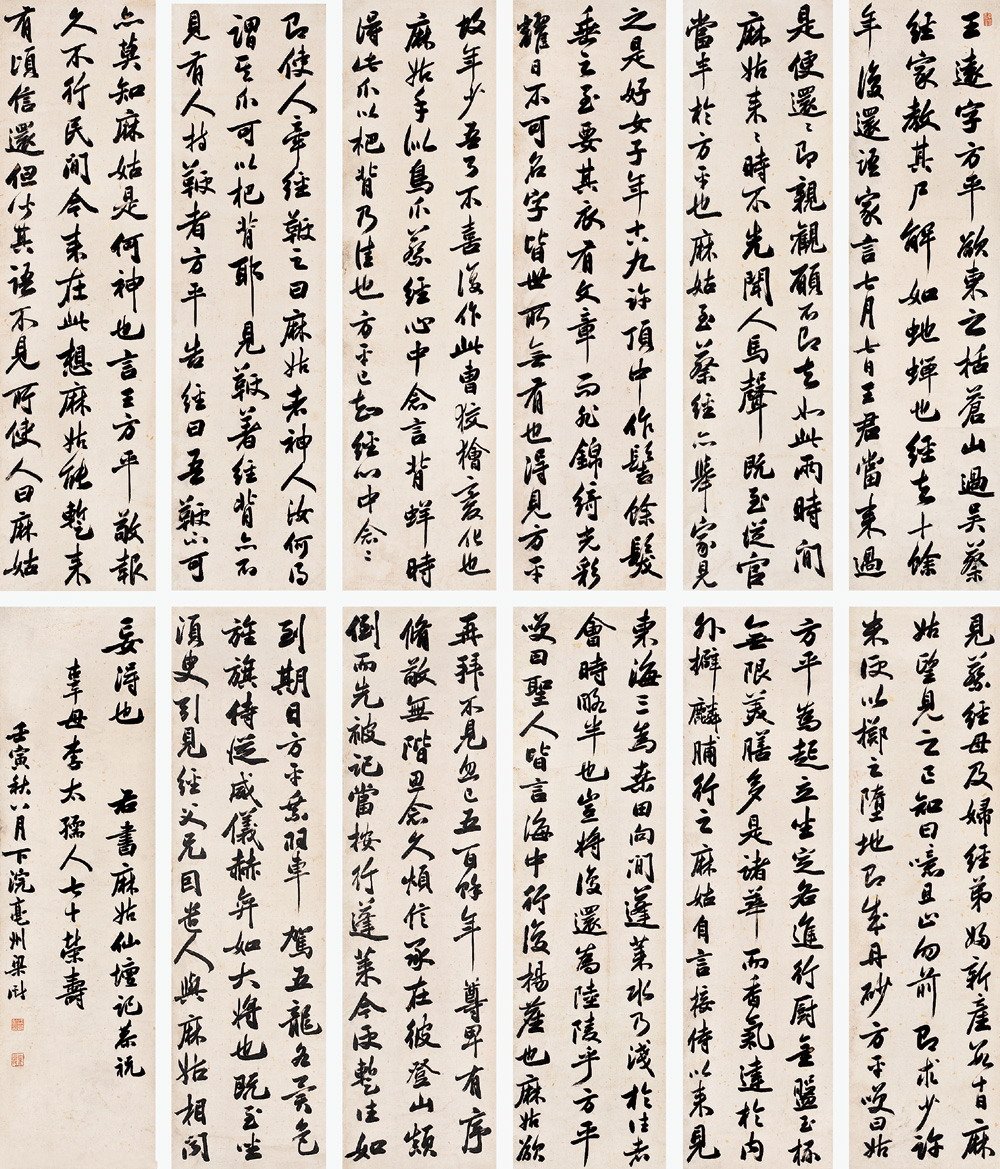 王遠字方平欲東之括蒼山過吳蔡
經家教其尸解如蛇蟬也經去十餘
年後還語家言七月七日王君當來過
是便還〻即親觀願不即去如此兩時間
麻姑來〻時不先聞人馬聲既至從官
當半於方平也麻姑至蔡經亦舉家見
之是好女子年十八九許頂中作髻餘髮
垂之至要其衣有文章而非錦綺光彩
耀日不可名字皆世所無有也得見方平
故年少吾了不喜復作此曹狡獪變化也
麻姑手似鳥爪蔡經心中念言背蛘時
得此爪以杷背乃佳也方平已知經心中念〻
即使人牽經鞭之曰麻姑者神人汝何得
謂其爪可以杷背耶見鞭著經背亦不
見有人持鞭者方平告經曰吾鞭不可
亦莫知麻姑是何神也言王方平敬報
久不行民間今來在此想麻姑能暫來
有頃信還但聞其語不見所使人曰麻姑
見蔡經母及婦經弟婦新產數十日麻
姑望見之已知曰噫且止勿前即求少許
米便以擲之墮地即成丹砂方平笑曰姑
方平為起立坐定各進行厨金盤玉杯
無限美膳多是諸華而香氣達於內
外擗麟脯行之麻姑自言接侍以來見
東海三為桑田向間蓬萊水乃淺於往者
會時略半也豈將復還為陸陵乎方平
笑曰聖人皆言海中行復揚塵也麻姑欲
再拜不見忽已五百餘年尊卑有序
脩敬無階思念久煩信承在彼登山顛
倒而先被記當按行蓬萊今便暫往如
到期日方平乘羽車駕五龍各異色
旌旗侍從威儀赫奕如大將也既至坐
須臾引見經父兄因遣人與麻姑相聞
妄得也 右書麻姑仙壇記恭祝
辜母李太孺人七十榮壽
壬寅秋八月下浣亳州梁巘